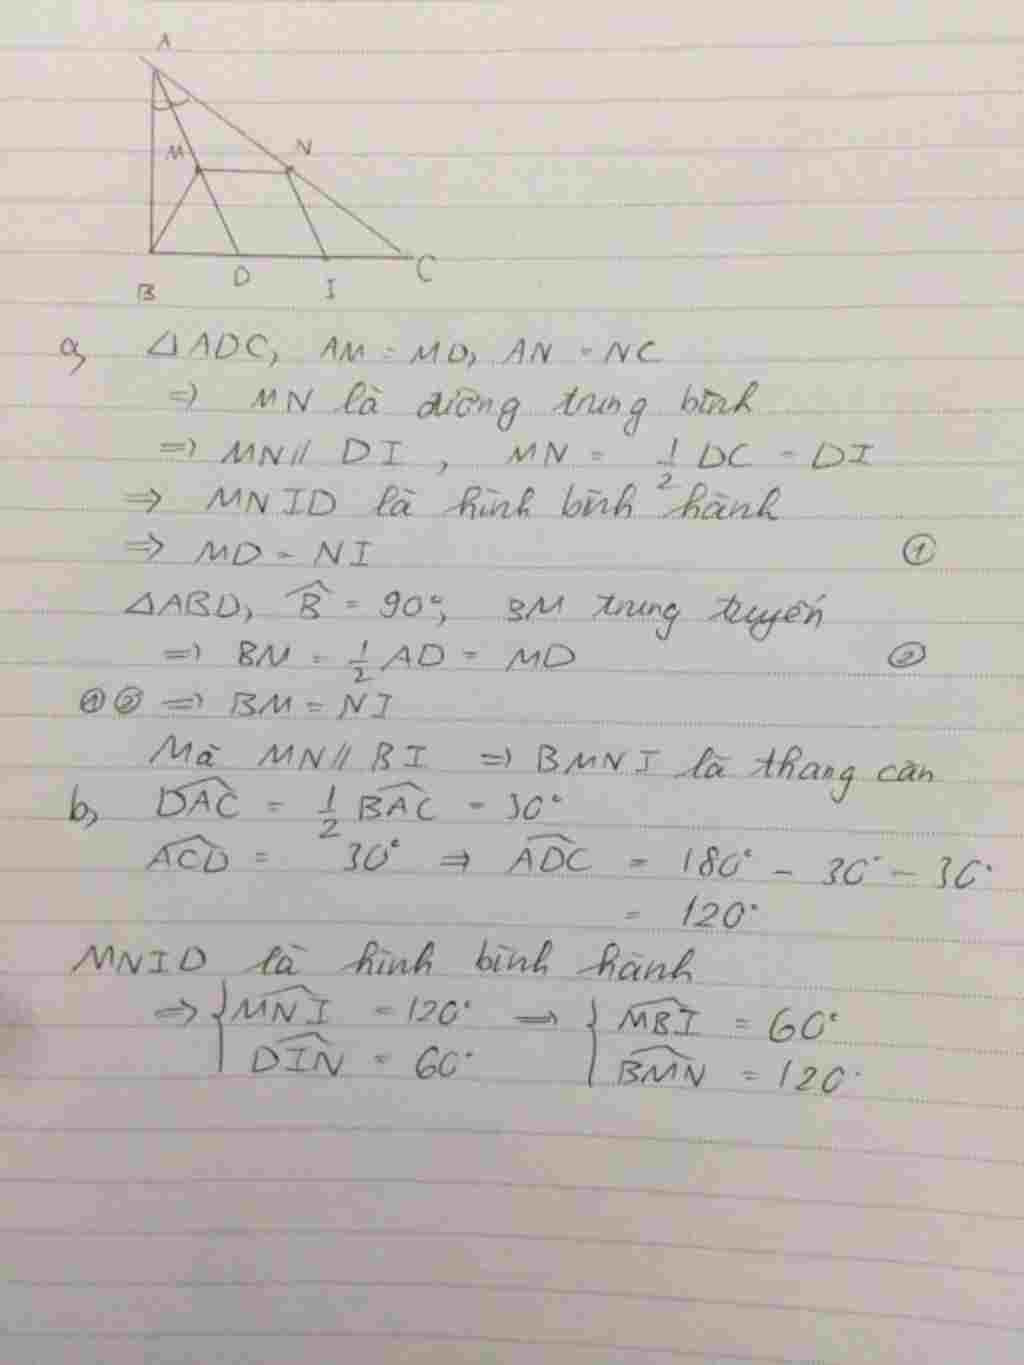 A
M
N
B
D
I
C
a, △ADC, AM = MD, AN = NC
=> MN là đường trung bình
=> MN // DI, MN = 1/2 DC = DI
=> MNID là hình bình hành
=> MD = NI ①
△ABD, B̂ = 90°, BM trung tuyến
=> BM = 1/2 AD = MD ②
① ② => BM = NI
Mà MN // BI => BMNI là thang cân
b, DAC = 1/2 BAC = 30°
ACD = 30° => ADC = 180° - 30° - 30°
= 120°
MNID là hình bình hành
=> { MNI = 120° => { MBI = 60°
DIN = 60° BMN = 120°